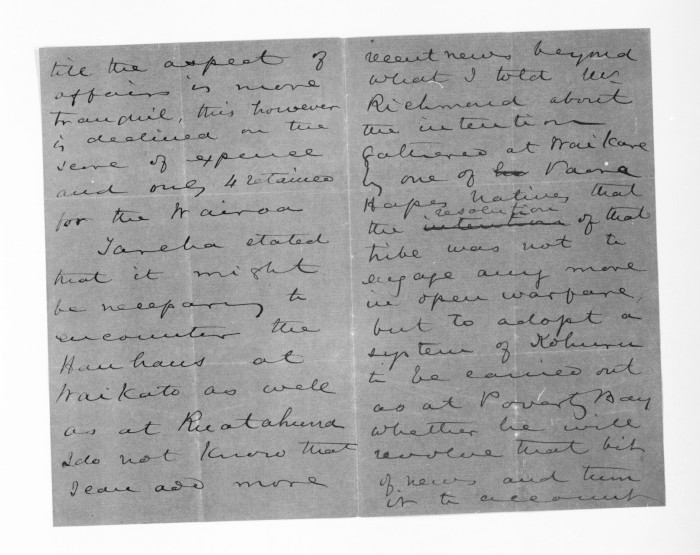 till the aspect of
affairs is more
tranquil, this however
is declined on the
score of expense
and only 4 retained
for the Wairoa
Tareha stated
that it might
be necessary to
encounter the
Hauhaus at
Waikato as well
as at Ruatahuna
I do not know that
I can add more
recent news beyond
what I told Mr
Richmond about
the intention
gathered at Waikare
by one of Paora
Hapes Natives that
the resolution of that
tribe was not to
engage any more
in open warfare,
but to adopt a
system of Kohuru
to be carried out
as at Poverty Bay
whether he will
revolve that bit
of news and turn
it to account